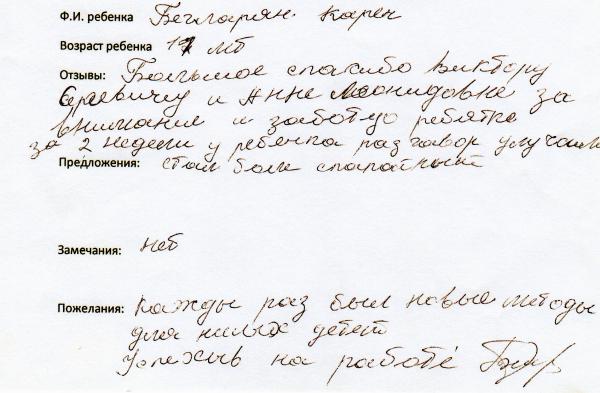 Ф.И. ребенка Бегларян Карен
Возраст ребенка 17 лет
Отзывы: Большое спасибо Виктору
и Анне Леонидовне за
внимание и заботую ребятке
за 2 недели у ребенка разговор
Предложения: стал боле
Замечания: нет
Пожелания: Кажды раз был новые методы
для наших детей
на работе